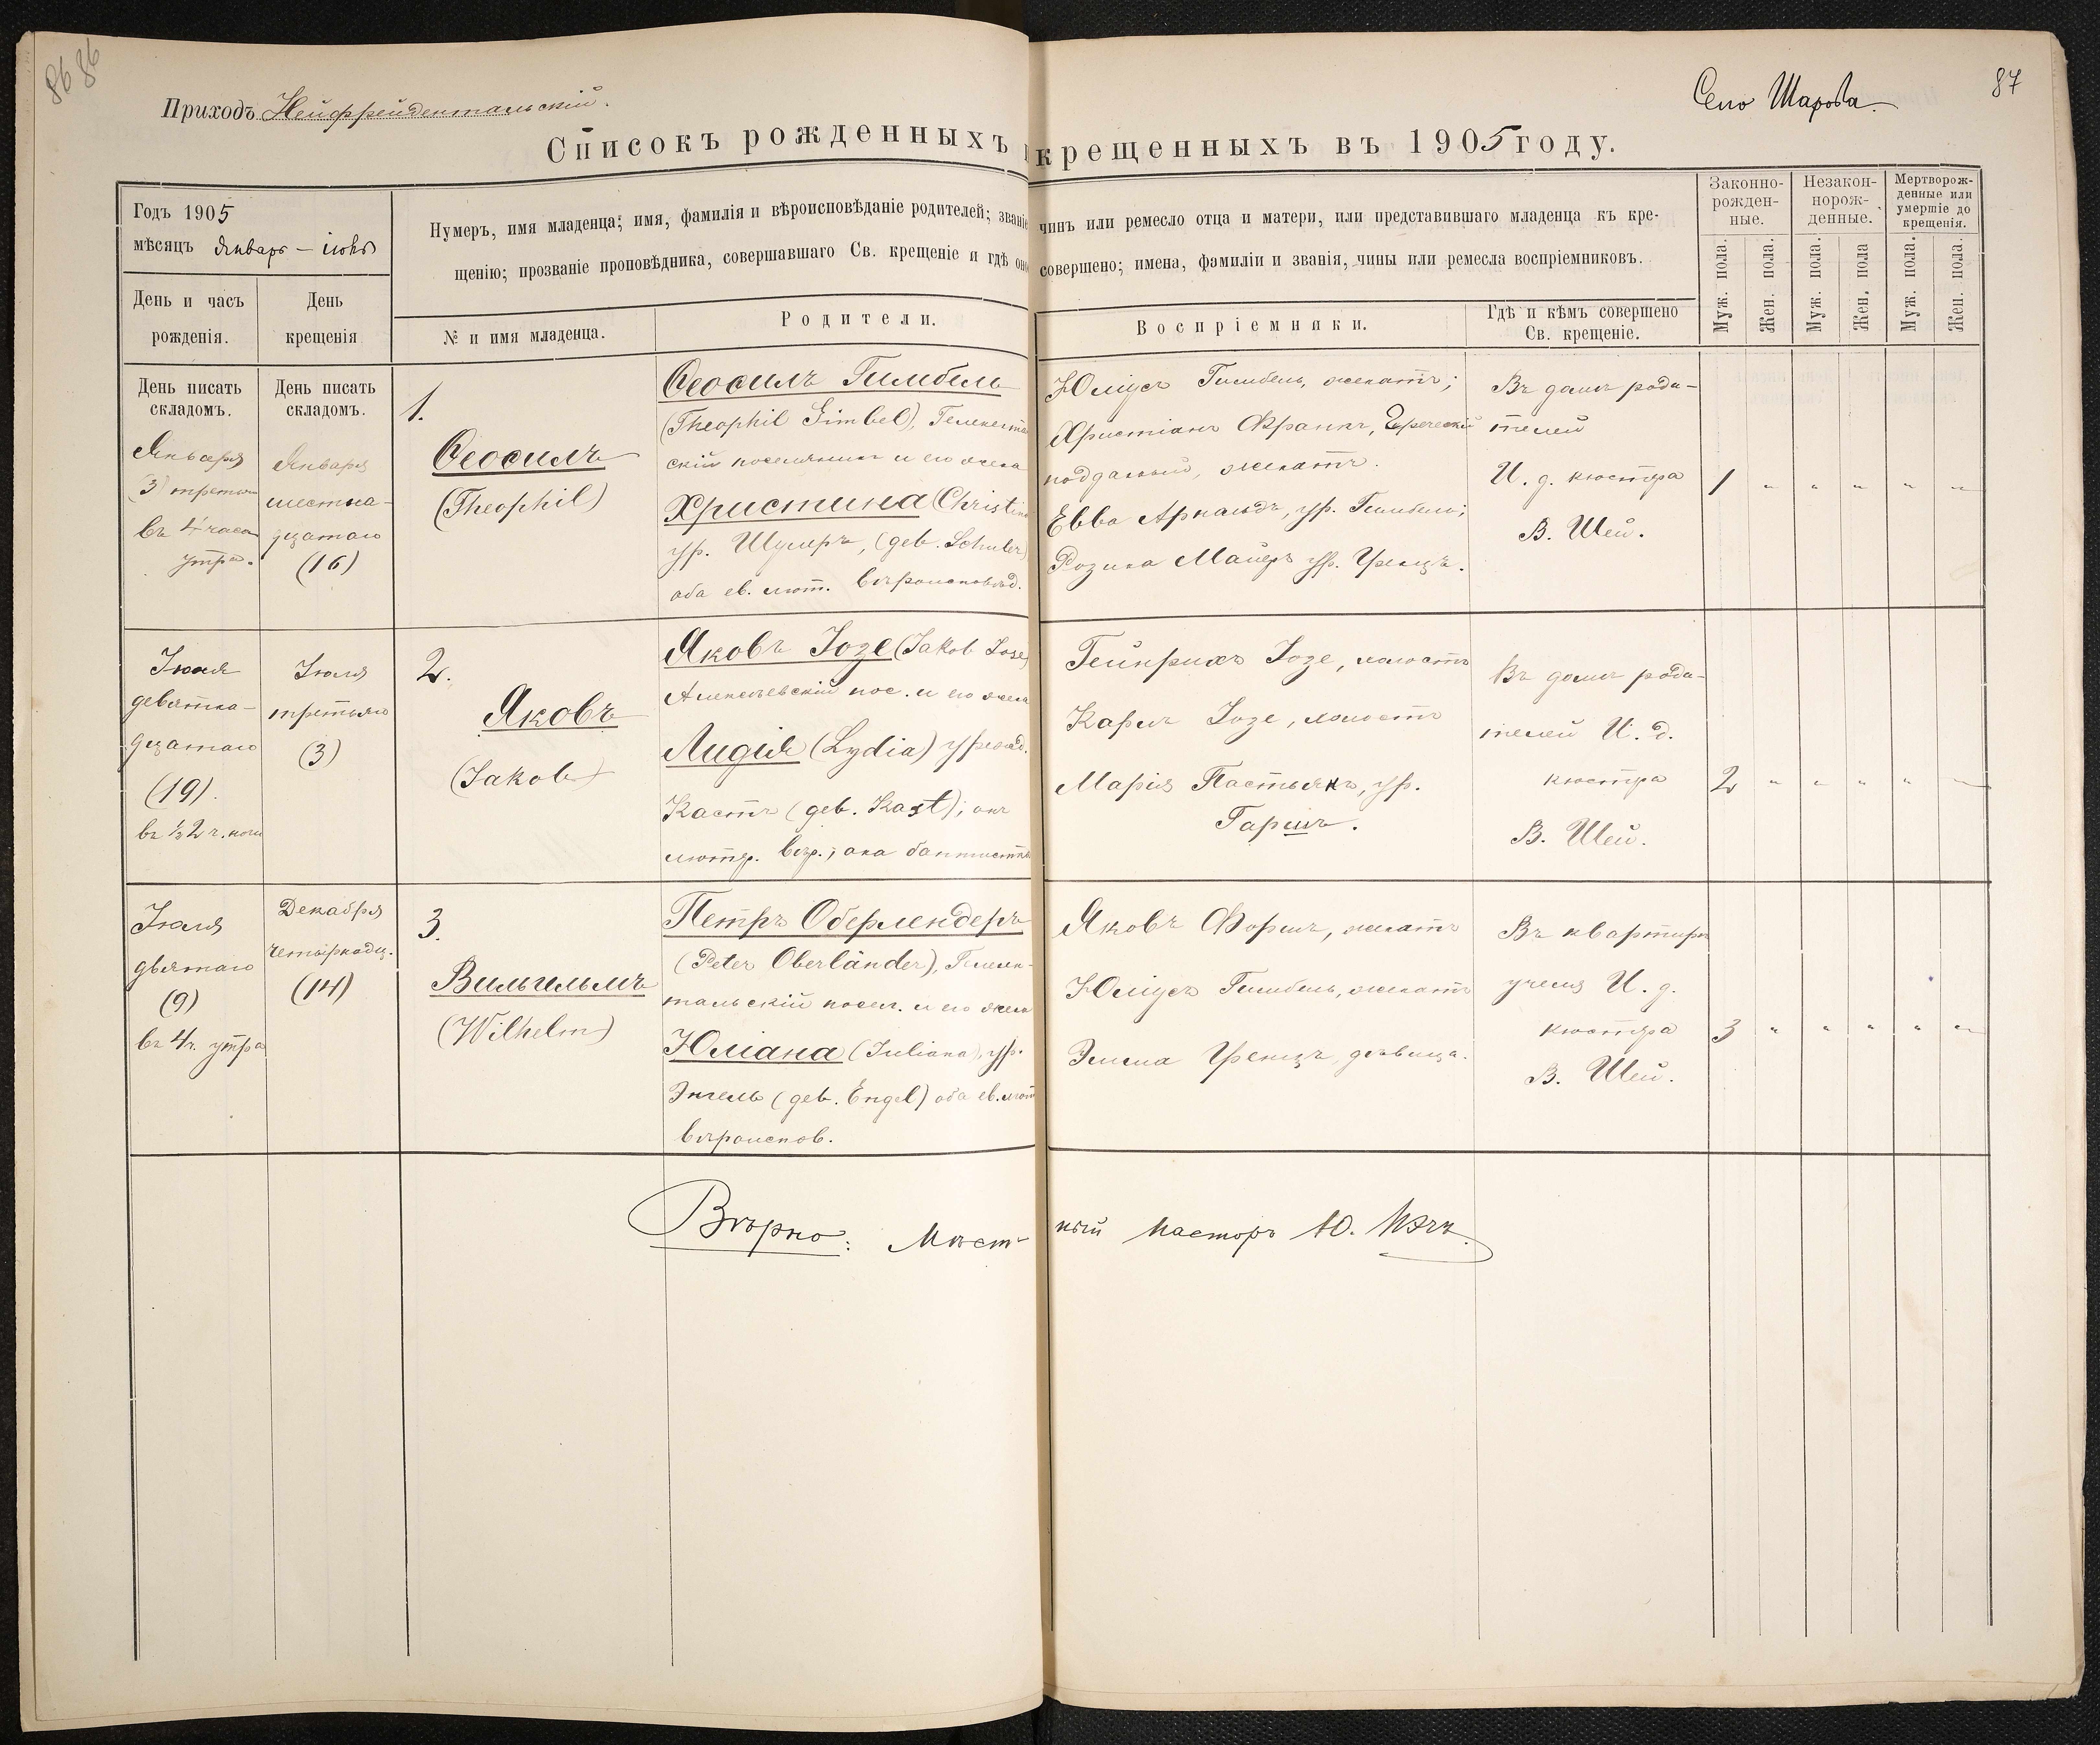 86 86
Приходъ Нейфрейдентальскій.
Село Шарова
87
Списокъ рожденныхъ и крещенныхъ въ 1905 году.
Годъ 1905
мѣсяцъ Январь — іюль
День и часъ
рожденія.
День
крещенія
Нумеръ, имя младенца; имя, фамилія и вѣроисповѣданіе родителей; званіе чинъ или ремесло отца и матери, или представившаго младенца къ кре-
щенію; прозваніе проповѣдника, совершавшаго Св. крещеніе и гдѣ оно совершено; имена, фамиліи и званія, чины или ремесла воспріемниковъ.
№ и имя младенца.
Родители.
Воспріемники.
Гдѣ и кѣмъ совершено
Св. крещеніе.
Законно-
рожден-
ные.
Незакон-
норож-
денные.
Мертворож-
денные или
умершіе до
крещенія.
Муж. пола.
Жен. пола.
Муж. пола.
Жен. пола
Муж. пола.
Жен. пола.
День писать
складомъ.
Января
(3) третьяго
въ 4 часа
утра.
День писать
складомъ.
Января
шестна-
дцатаго
(16)
1.
Ѳеофилъ
(Theophil)
Ѳеофилъ Гимбель
(Theophil Gimbel),
скій поселянинъ и его жена
Христина (Christina
ур. Шулеръ, (geb. Schuler)
оба ев. лют. вѣроисповѣд.
Юліусъ Гимбель, женатъ;
Христіанъ Франкъ,
подданый, женатъ.
Евва Арнольдъ, ур. Гимбель;
Розина Майеръ ур. Френцъ.
Въ домѣ роди-
телей
И. д. кюстра
В. Шей.
1 " " " " "
Іюня
девятна-
дцатаго
(19).
въ ½2 ч. ночи
Іюля
третьяго
(3)
2.
Яковъ
(Jakob)
Яковъ Іозе (Jakob Jose)
Алексѣевскій пос. и его жена
Лидія (Lydia) урожд.
Кастъ (geb. Kast); онъ
лютер. вѣр.; она баптистка
Гейнрихъ Іозе, холостъ
Карлъ Іозе, холостъ
Марія Пастьянъ, ур.
Гаршъ.
Въ домѣ роди-
телей И. д.
кюстра
В. Шей.
2 " " " " "
Іюля
девятаго
(9)
въ 4 ч. утра
Декабря
четырнадц.
(14)
3.
Вильгельмъ
(Wilhelm)
Петръ Оберлендеръ
(Peter Oberländer), Гелен-
тальскій посел. и его жена
Юліана (Juliana), ур.
Энгель (geb. Engel) оба ев. лют
вѣроиспов.
Яковъ Форшъ, женатъ
Юліусъ Гимбель, женатъ
Эмма Френцъ, дѣвица.
Въ квартирѣ
И. д.
кюстра
В. Шей.
3 " " " " "
Вѣрно: Мѣст-
ный Пасторъ Ю.